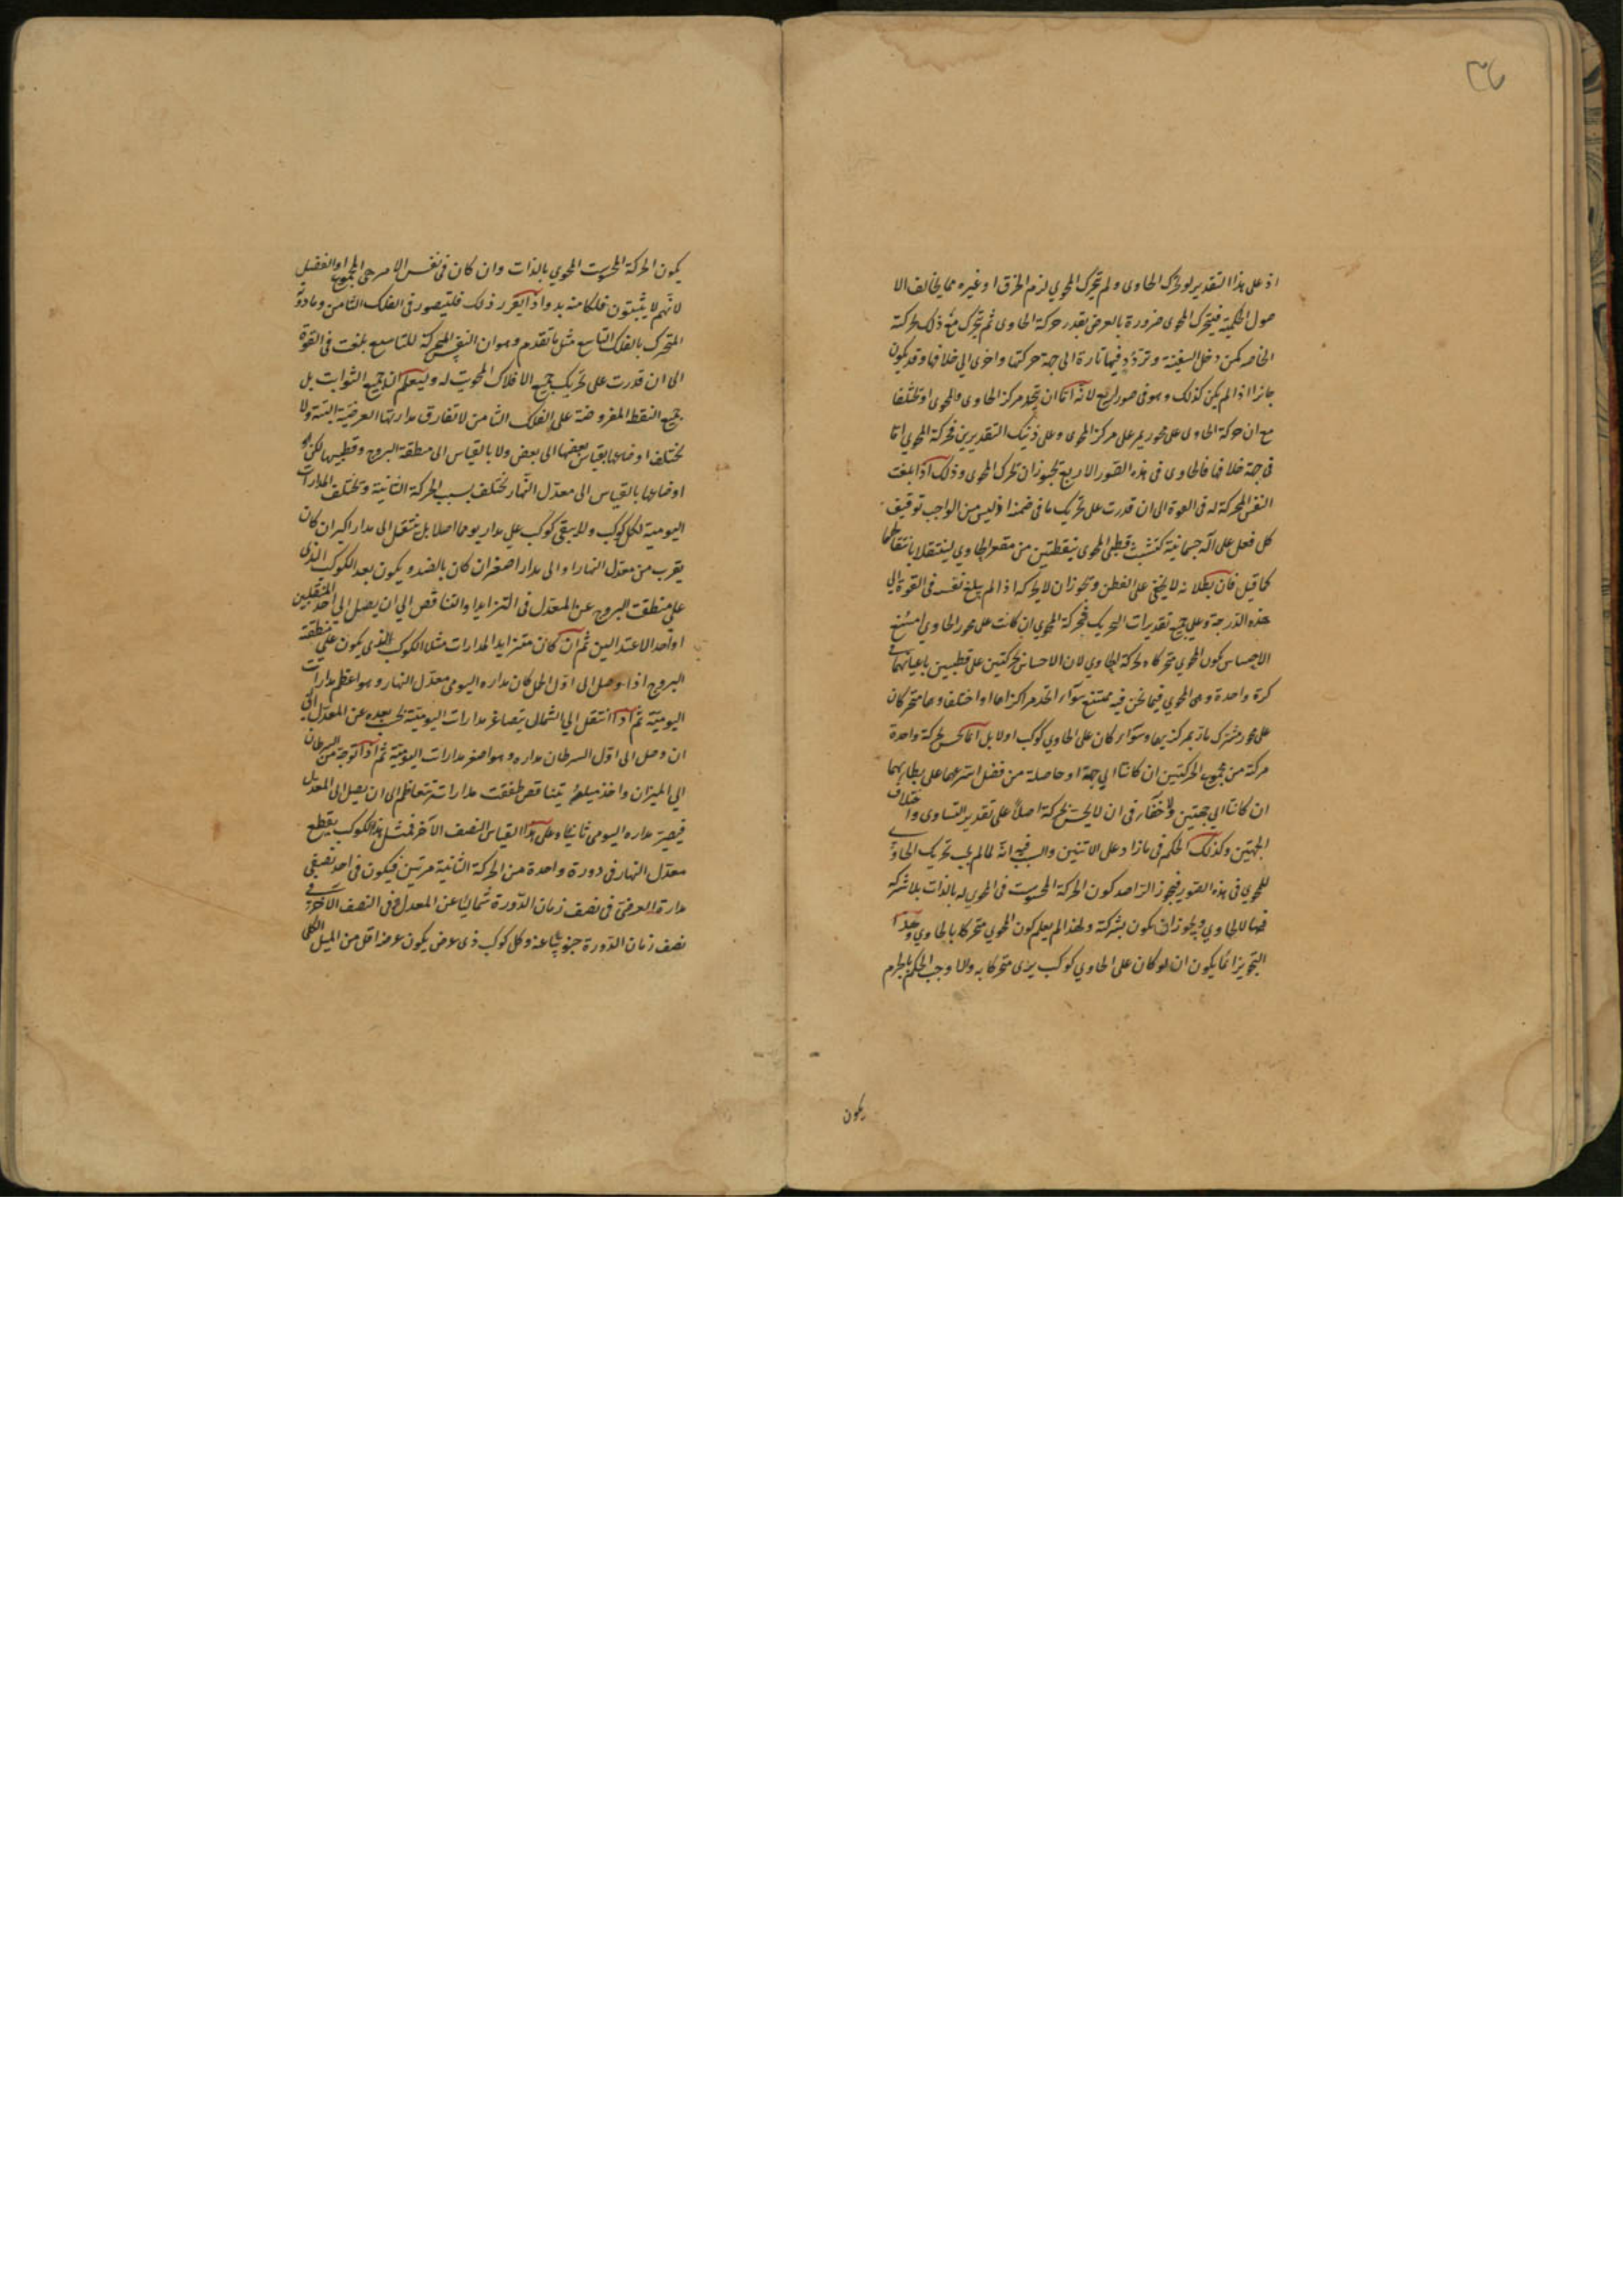 ٣٦
اذ على هذا التقدير لو تحرك الحاوى ولم يتحرك المحوي لزم الخرق او غيره مما يخالف الا
صول الحكمية فيتحرك المحوى ضرورة بالعرض بقدر حركة الحاوى ثم يتحرك مع ذلك بحركته
الخاصه كمن دخل السفينة وتردد فيها تارة الى جهة حركتها واخرى الي خلافها وقد يكون
جائزا اذا لم يكن كذلك وهو في صور اربع لانه اما ان يتحد مركز الحاوى والمحوى او يختلفا
مع ان حركة الحاوى على محور يمر على مركز المحوى وعلى ذينك التقديرين فحركة المحوي اما
في جهة خلافها فالحاوى في هذه الصور الاربع يجوز ان تحرك المحوى وذلك اذا بلغت
النفس المحركة له في القوة الى ان قدرت على تحريك ما في ضمنه اذ ليس من الواجب توقيف
كل فعل على آلة جسمانية كتشبث قطبى المحوى بنقطتين من مقعر الحاوي لينتقلا بانتقالهما
كما قيل فان بطلانه لا يخفى على الفطن ويجوز ان لا يحركه اذا لم يبلغ نفسه في القوة الي
هذه الدرجة وعلي جميع تقديرات التحريك فحركة المحوي ان كانت على محور الحاوي امتنع
الاحساس بكون المحوي متحركا بحركة الحاوي لان الاحساس بحركتين على قطبين باعيانهما في
كرة واحدة وهى المحوي فيما نحن فيه ممتنع سواء اتحد مراكزاهما او اختلفا وهما متحركان
على محور مشترك مار بمركزيهما وسواء كان على الحاوي كوكب اولا بل انما يحس بحركة واحدة
مركبة من مجموع الحركتين ان كانتا الي جهة او حاصلة من فضل اسرعهما على بطايهما
ان كانتا الي جهتين ولا خفاء في ان لا يحس بحركة اصلا على تقدير التساوى واختلاف
الجهتين وكذلك الحكم في ما زاد على الاثنين والسبب فيه انه لما لم يجب تحريك الحاوي
للمحوي في هذه الصور فيجوز الراصد كون الحركة المحسوسة في المحوي له بالذات بلا شركة
فيها للحاوي ويجوز ان يكون بشركته ولهذا لم يعلم كون المحوي متحركا بالحاوي وهذا
التجويز انما يكون ان لو كان على الحاوي كوكب يرى متحركا به والا وجب الحكم بالجزم
يكون
يكون الحركة المحسوسة للمحوي بالذات وان كان في نفس الامر هى المجموع او الفضل
لانهم لا يثبتون فلكا منه بد واذا تقرر ذلك فليتصور في الفلك الثامن وما دونه
المتحرك بالفلك التاسع مثل ما تقدم وهو ان النفس المحركة للتاسع بلغت في القوة
الى ان قدرت على تحريك جميع الافلاك المحوية له وليعلم ان جميع الثوابت بل
جميع النقط المفروضة على الفلك الثامن لا تفارق مداراتها العرضية البتة ولا
يختلف اوضاعها بقياس بعضها الى بعض ولا بالقياس الى منطقة البروج وقطبيها لكن
اوضاعها بالقياس الى معدل النهار يختلف بسبب الحركة الثانية وتختلف المدارات
اليومية لكل كوكب ولا يبقى كوكب على مدار يوما اصلا بل ينتقل الى مدار اكبر ان كان
يقرب من معدل النهار او الى مدار اصغر ان كان بالضد ويكون بعد الكوكب الذى
على منطقة البروج عن المعدل في التزايد او التناقص الي ان يصل الي احد المنقلبين
او احد الاعتدالين ثم ان كان متزايد المدارات مثلا الكوكب الذي يكون على منطقة
البروج اذا وصل الى اول الحمل كان مداره اليومي معدل النهار وهو اعظم مدارات
اليومية ثم اذا انتقل الي الشمال يتصاغر مدارات اليومية بحسب بعده عن المعدل الى
ان وصل الى اول السرطان مداره وهو اصغر مدارات اليومية ثم اذا توجه من السرطان
الي الميزان واخذ ميله يتناقص طفقت مداراته تتعاظم الى ان يصل الى المعدل
فيصير مداره اليومى ثانيا وعلى هذا القياس النصف الآخر فمثل هذا الكوكب يقطع
معدل النهار في دورة واحدة من الحركة الثانية مرتين فيكون في احد نصفي
مداره العرضى في نصف زمان الدورة شماليا عن المعدل وفي النصف الآخر في
نصف زمان الدورة جنوبيا عنه وكل كوكب ذى عرض يكون عرضه اقل من الميل الكلى